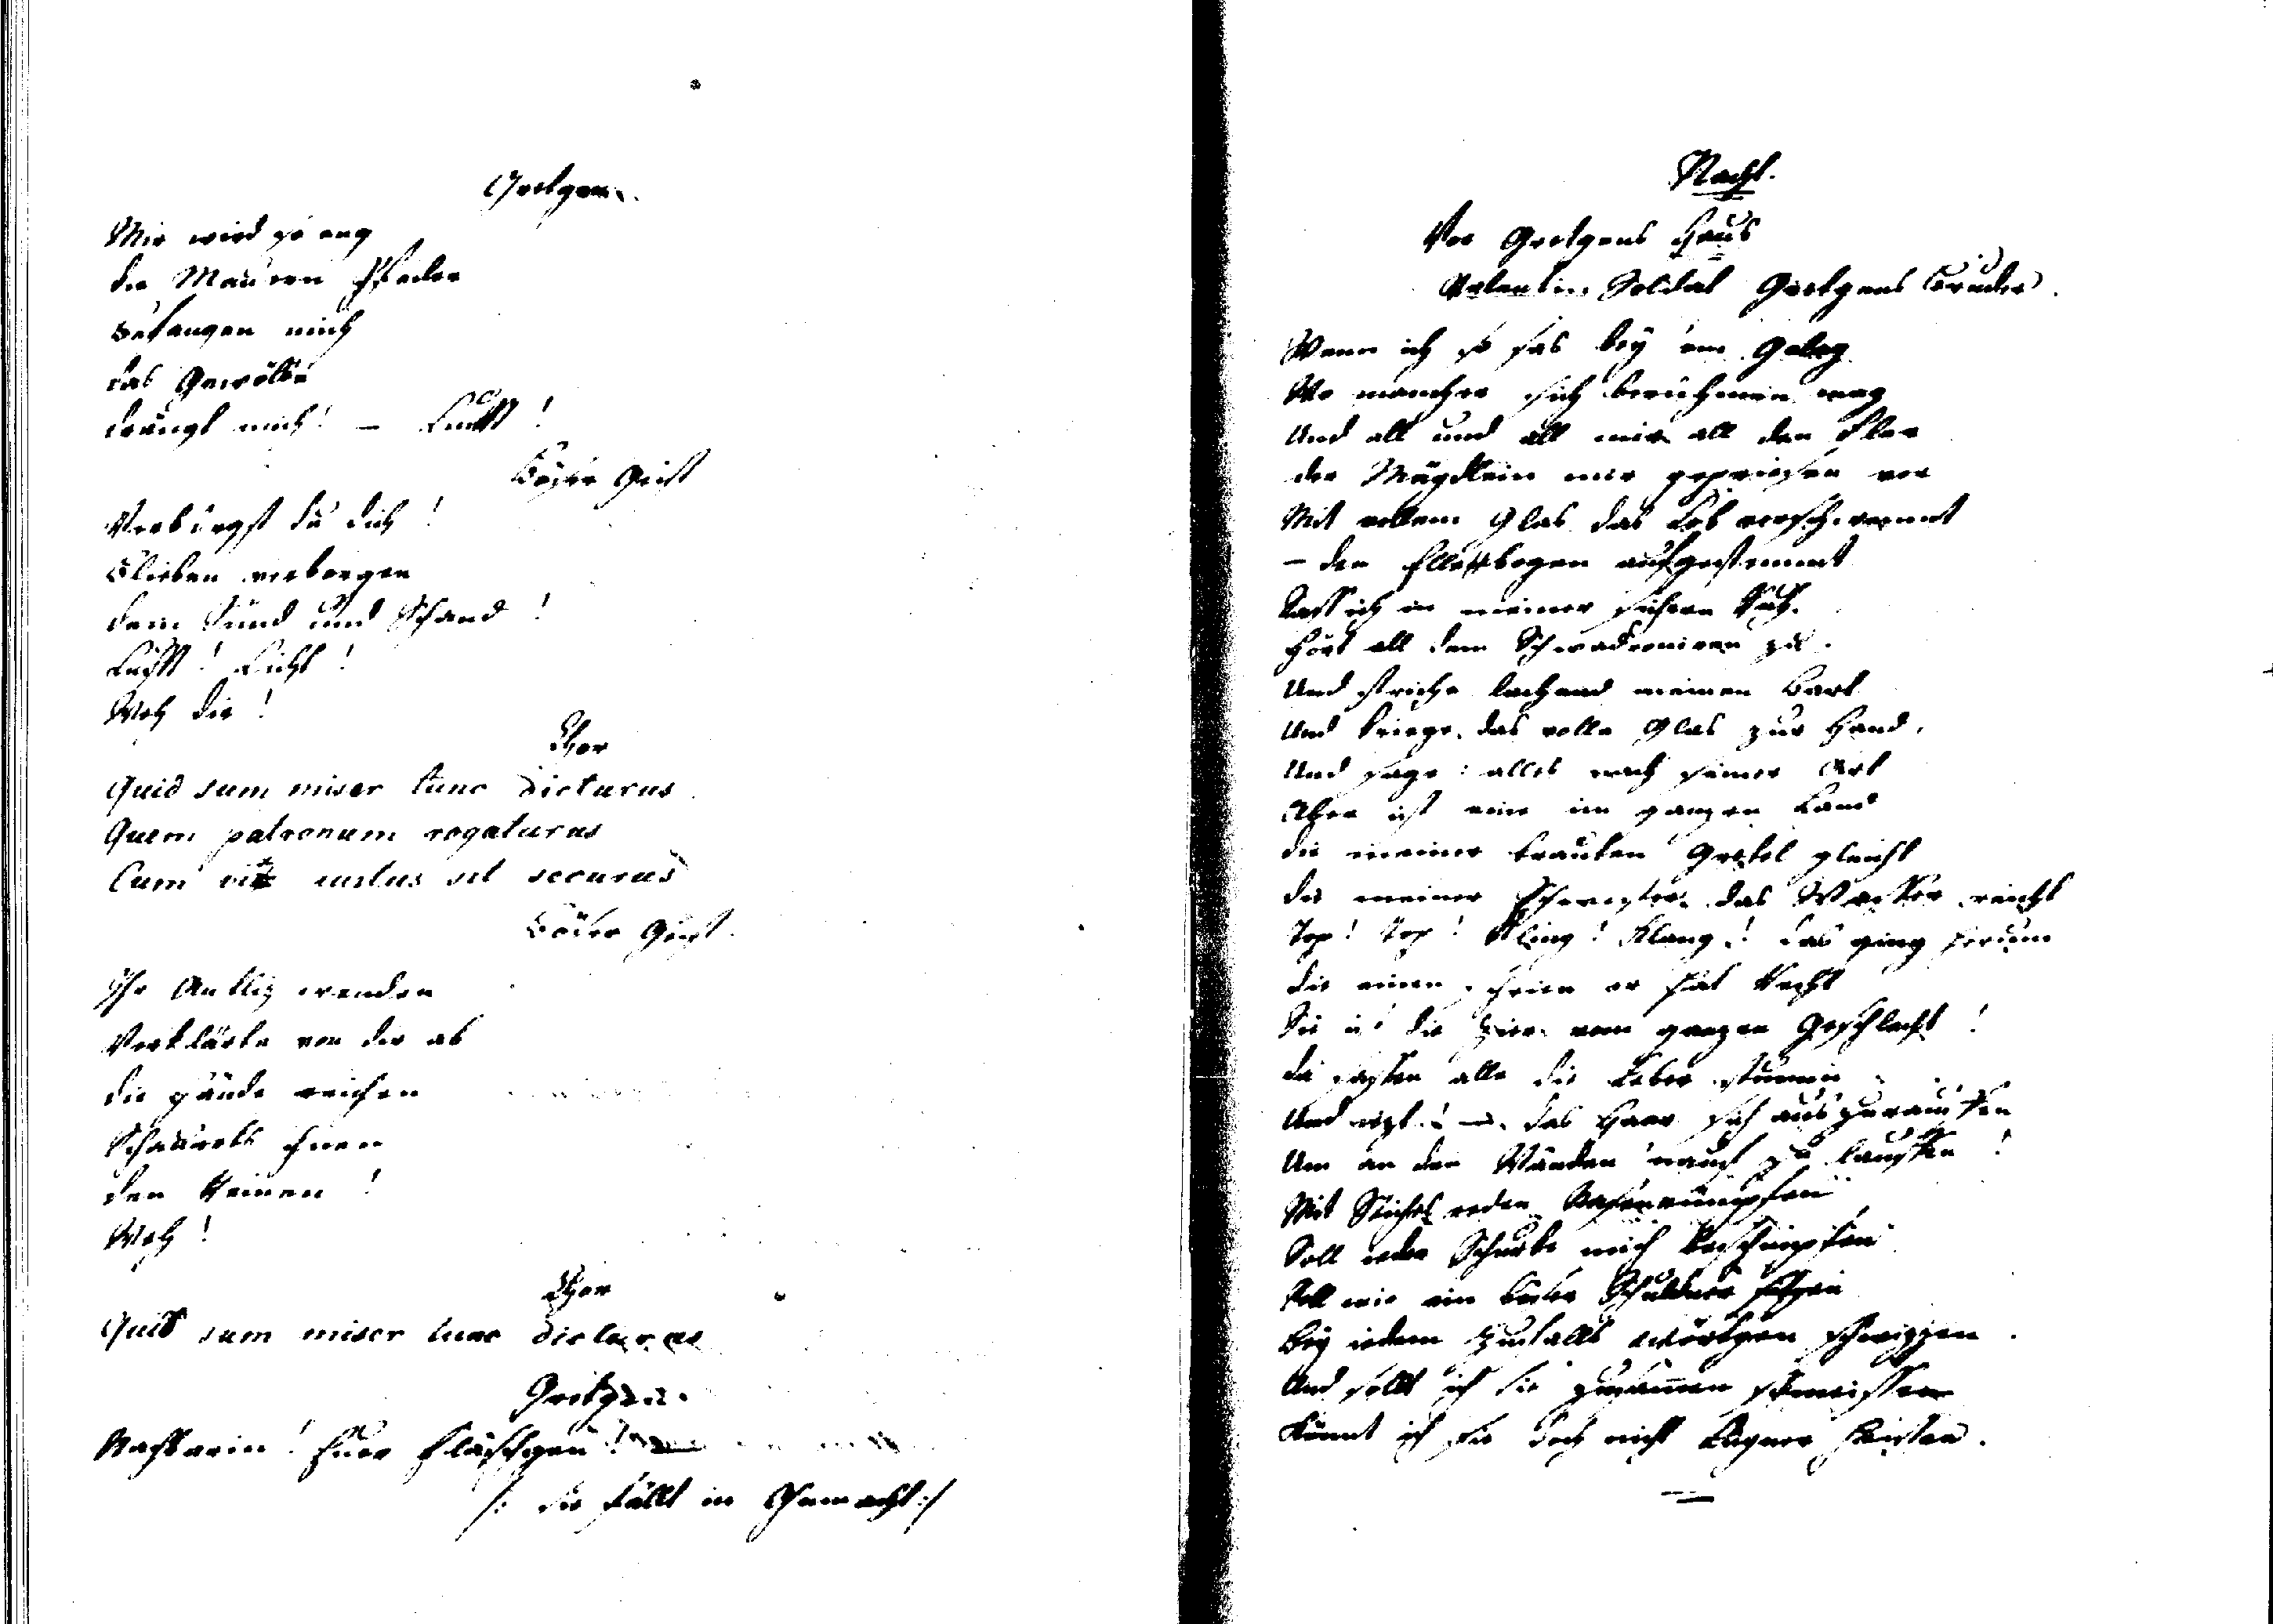 Gretgen.
Mir wird so eng
die Mauren Pfeiler
Befangen mich
das Gewölbe
drängt mich! – Lufft!
Böser Geist
Verbirgst du dich!
Blieben verborgen
dein Sünd und Schand!
Lufft! Licht!
Weh dir!
Chor
Quid sum miser tunc dicturus
Quem patronum rogaturus
Cum vix iustus sit securus
Böser Geist.
Ihr Antliz wenden
Verklärte von dir ab
die Hände reichen
Schauerts ihnen
den Reinen!
Weh!
Chor
Quid sum miser tunc dicturus
Gretgen.
Nachbarin! Euer Fläschgen! –
/: sie fällt in Ohnmacht :/
Nacht.
Vor Gretgens Haus
Valentin Soldat Gretgens Bruder.
Wenn ich so sas bey 'em Gelag
Wo mancher sich berühmen mag
Und all und all mir all den Flor
der Mägdlein mir gepriesen vor
Mit vollem Glas das Lob verschwemmt
– den Ellebogen aufgestemmt
Sass ich in meiner sichern Ruh.
Hört all dem Schwadroniren zu.
Und striche lachend meinen Bart
Und kriege das volle Glas zur Hand.
Und sage: alles nach seiner Art
Aber ist eine im ganzen Land
die meiner trauten Gretel gleicht
die meiner Schwester das Wasser reicht
Top! Top! Kling! Klang! das ging herum
die einen schrien er hat Recht
Sie ist die Zier vom ganzen Geschlecht!
da sasen alle die Lober stumm
Und iezt! – das Haar sich auszurauffen
Um an den Wänden nauf zu lauffen!
Mit Stichel reden Nasenrümpfen
Soll ieder Schurke mich beschimpfen
Soll wie ein böser Schuldner sizzen
Bey iedem Zufalls wörtgen schwizzen.
Und sollt ich sie zusammen schmeissen
Könnt ich sie doch nicht Lügner heissen.